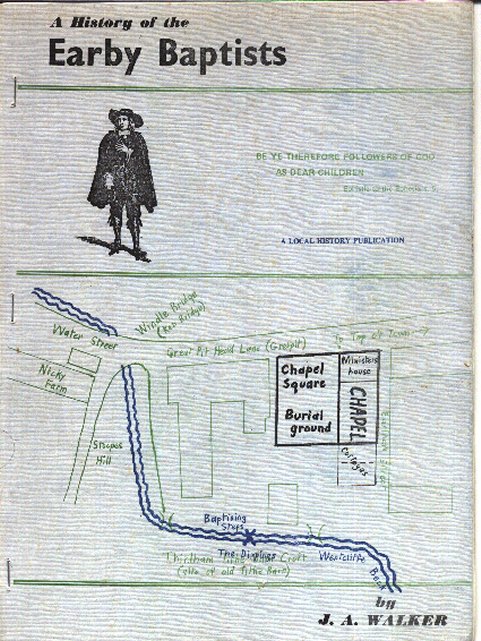 A History of the
Earby Baptists
BE YE THEREFORE FOLLOWERS OF GOD
AS DEAR CHILDREN
A LOCAL HISTORY PUBLICATION
Windle Bridge
Water Street
Great Pit Head Lane
To Top of Town
Nicky
Farm
Chapel
Square
Ministers
house
CHAPEL
Burial
ground
Cottages
Stoopes
Hill
Baptising
Steps
The Dippings
Westcliffe
Croft
(site of old Tithe Barn)
Beck
by
J. A. WALKER